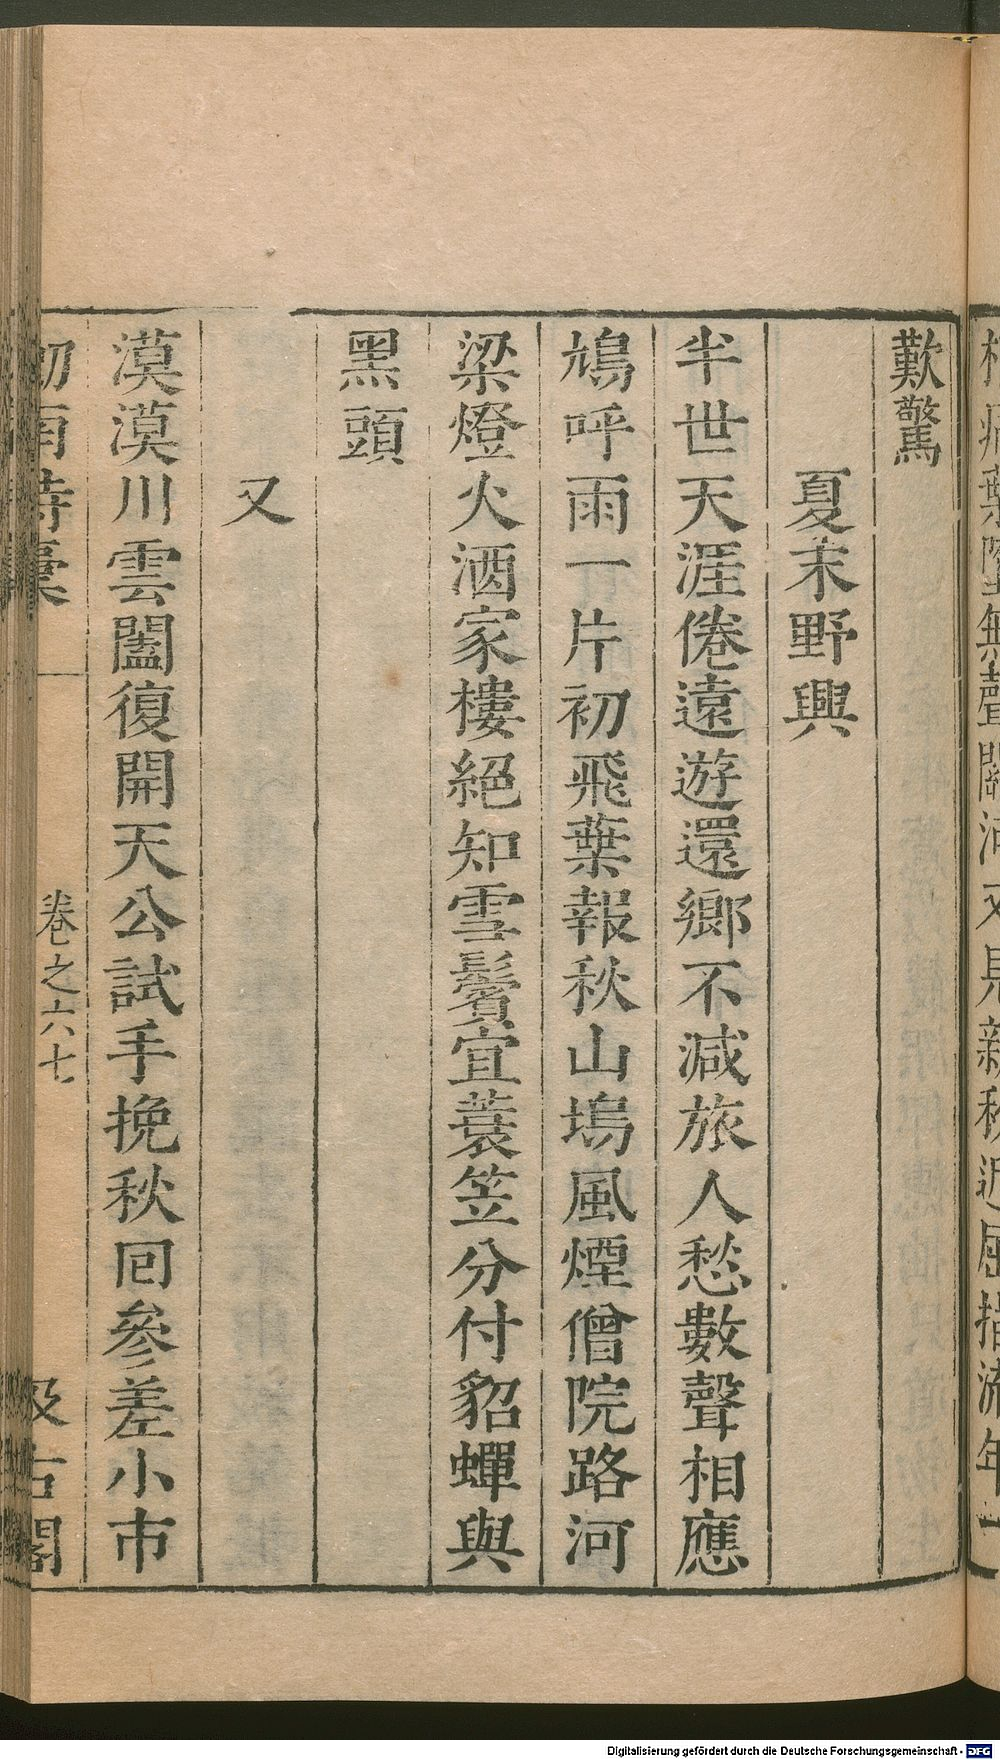 歎驚
夏末野興
半世天涯倦遠遊還鄉不減旅人愁數聲相應
鳩呼雨一片初飛葉報秋山塢風煙僧院路河
梁燈火酒家樓絕知雪鬢宜蓑笠分付貂蟬與
黑頭
又
漠漠川雲闔復開天公試手挽秋回參差小市
劒南詩稾
卷之六七
汲古閣
Digitalisierung gefördert durch die Deutsche Forschungsgemeinschaft - DFG